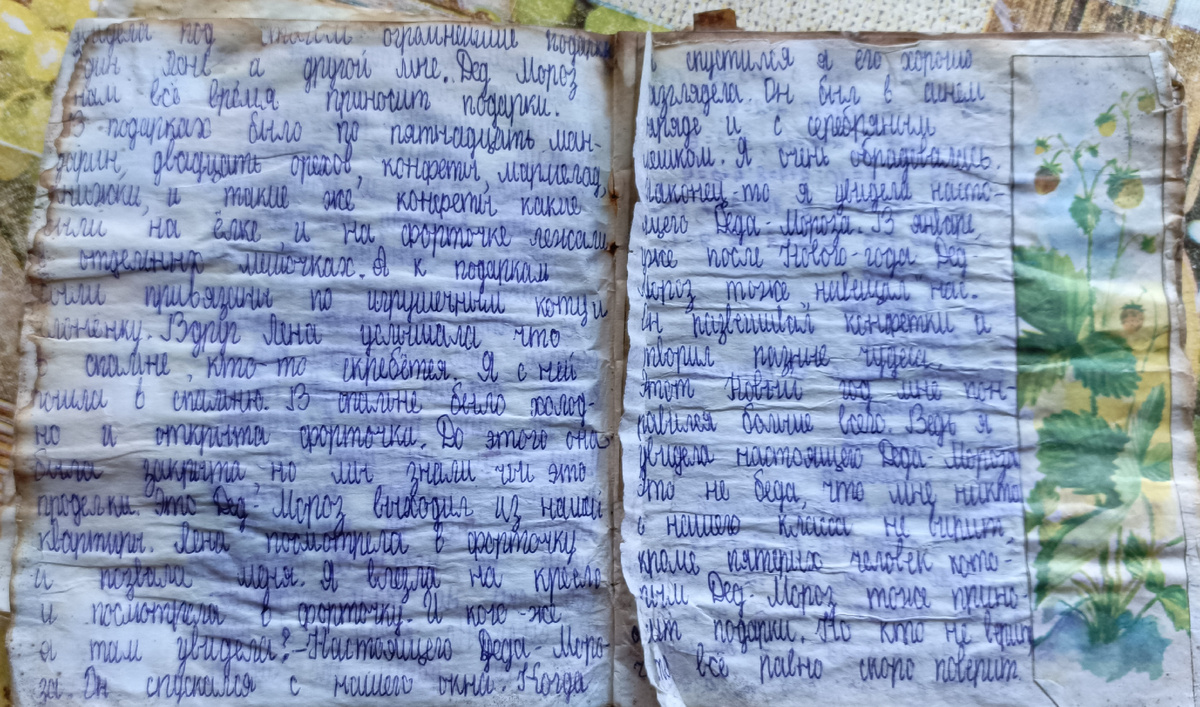 увидела под ёлкой огромнейшие подарки
один Лене а другой мне. Дед Мороз
нам всё время приносит подарки.
В подарках было по пятнадцать ман-
дарин, двадцать орехов, конфеты, мармелад,
книжки, и такие же конфеты какие
были на ёлке, и на форточке лежали
в отдельных мешочках. А к подаркам
были привязаны по игрушечным коту и
слонёнку. Вдруг Лена услышала что
в спальне, кто-то скребётся. Я с ней
пошла в спальню. В спальне было холод-
но и открыта форточка. До этого она
была закрыта, но мы знали чьи это
проделки. Это Дед-Мороз выходил из нашей
квартиры. Лена посмотрела в форточку
и позвала меня. Я влезла на кресло
и посмотрела в форточку. И кого-же
я там увидела?-Настоящего Деда-Моро-
за. Он спускался с нашего окна. Когда
спустился я его хорошо
взглядела. Он был в синем
наряде и с серебряным
мешком. Я очинь обрадувалась.
Наконец-то я увидела насто-
ящего Деда-Мороза. В январе
уже после Нового-года Дед-
Мороз тоже навещал нас.
Он развешивал конфетки и
творил разные чудеса.
Этот Новый год мне пон-
равился больше всего. Ведь я
увидела настоящего Деда-Мороза
Это не беда, что мне никто
с нашего класса не вирит,
кроме пятерых человек кото-
рым Дед-Мороз тоже прино-
сит подарки. Но кто не верит
всё равно скоро поверит.